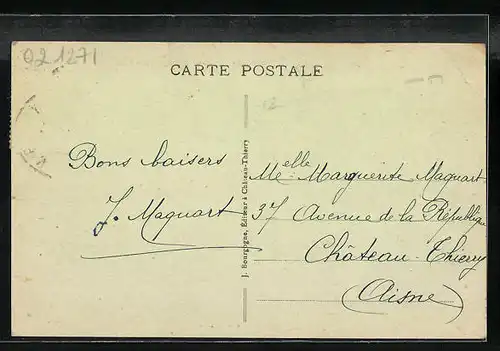 021271
CARTE POSTALE
Bons baisers
J. Maguart
J. Bourgogne, Éditeur à Château-Thierry
Melle Marguerite Maguart
37 Avenue de la République
Château-Thierry
(Aisne)